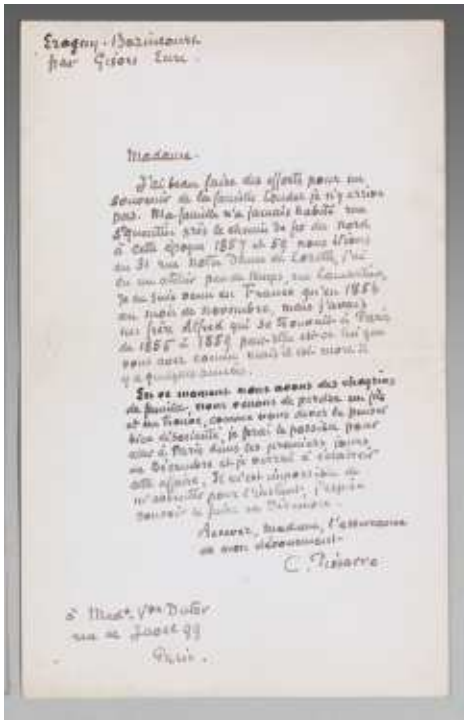 Eragny-Bazincourt
par Gisors Eure
Madame.
J'ai beau faire des efforts pour me
souvenir de la famille je n'y arrive
pas. Ma famille n'a jamais habité rue
St quentin près le chemin de fer du nord
à cette époque 1857 et 59 nous étions
au 31 rue Notre Dame de Lorette, j'ai
eu un atelier peu de temps, rue
Je ne suis venu en France qu'en 1855
au mois de novembre, mais j'avais
un frère Alfred qui se trouvait à Paris
de 1855 à 1859 peut-être est-ce lui que
vous avez connu mais il est mort il
y a quelques années.
En ce moment nous avons des chagrins
de famille, nous venons de perdre un fils
et me trouve, comme vous devez le penser
bien désorienté, je ferai le possible pour
aller à Paris dans les premiers jours
de Décembre et je verrai à éclaircir
cette affaire. Il m'est impossible de
m'absenter pour l'instant, j'espère
pouvoir le faire en Décembre.
Recevez, Madame, l'assurance
de mon dévouement
C. Pissarro
à Made Vve
rue de 99
Paris.